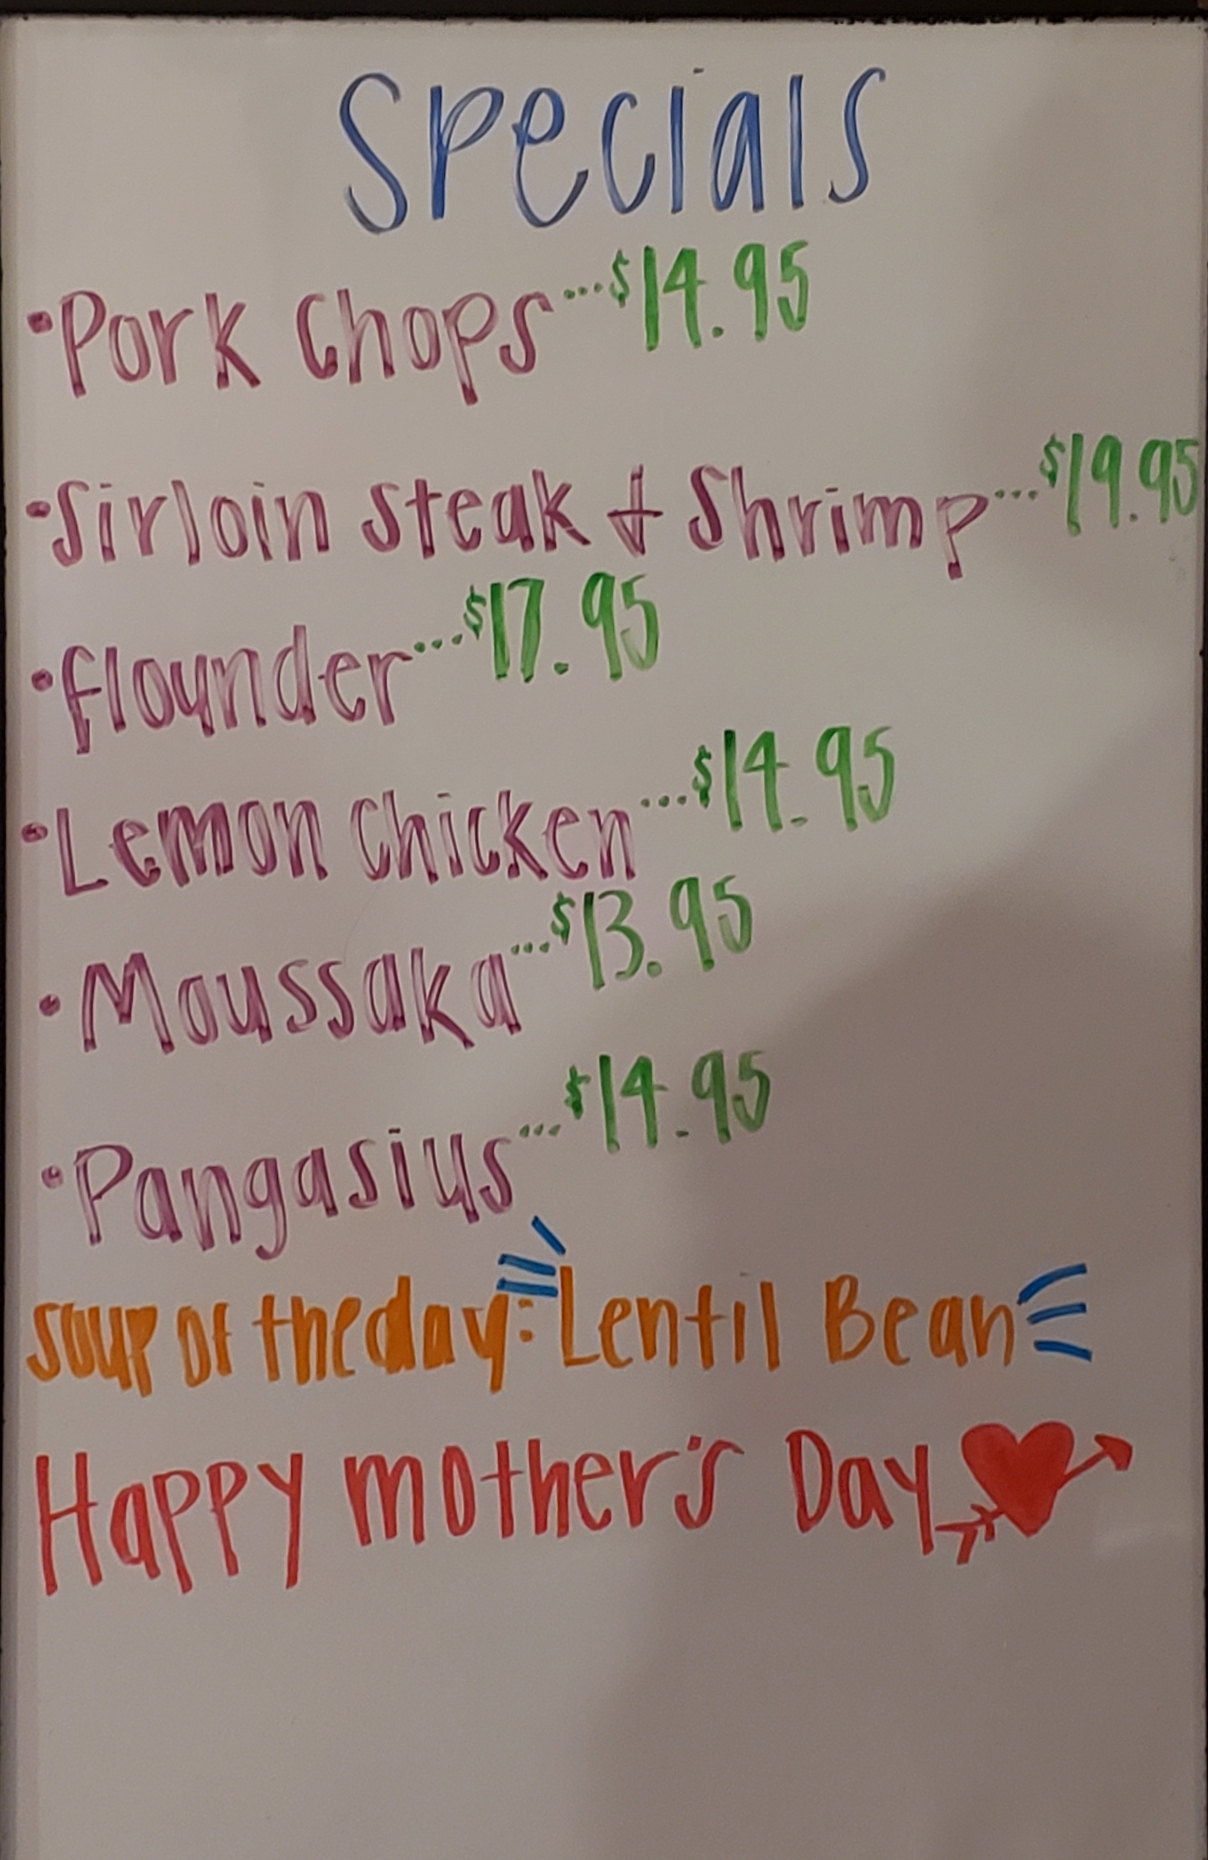 Specials
•Pork Chops...$14.95
•Sirloin Steak & Shrimp...$19.95
•flounder...$17.95
•Lemon Chicken...$14.95
•Moussaka...$13.95
•Pangasius...$14.95
Soup of the day: Lentil Bean
Happy mother's Day